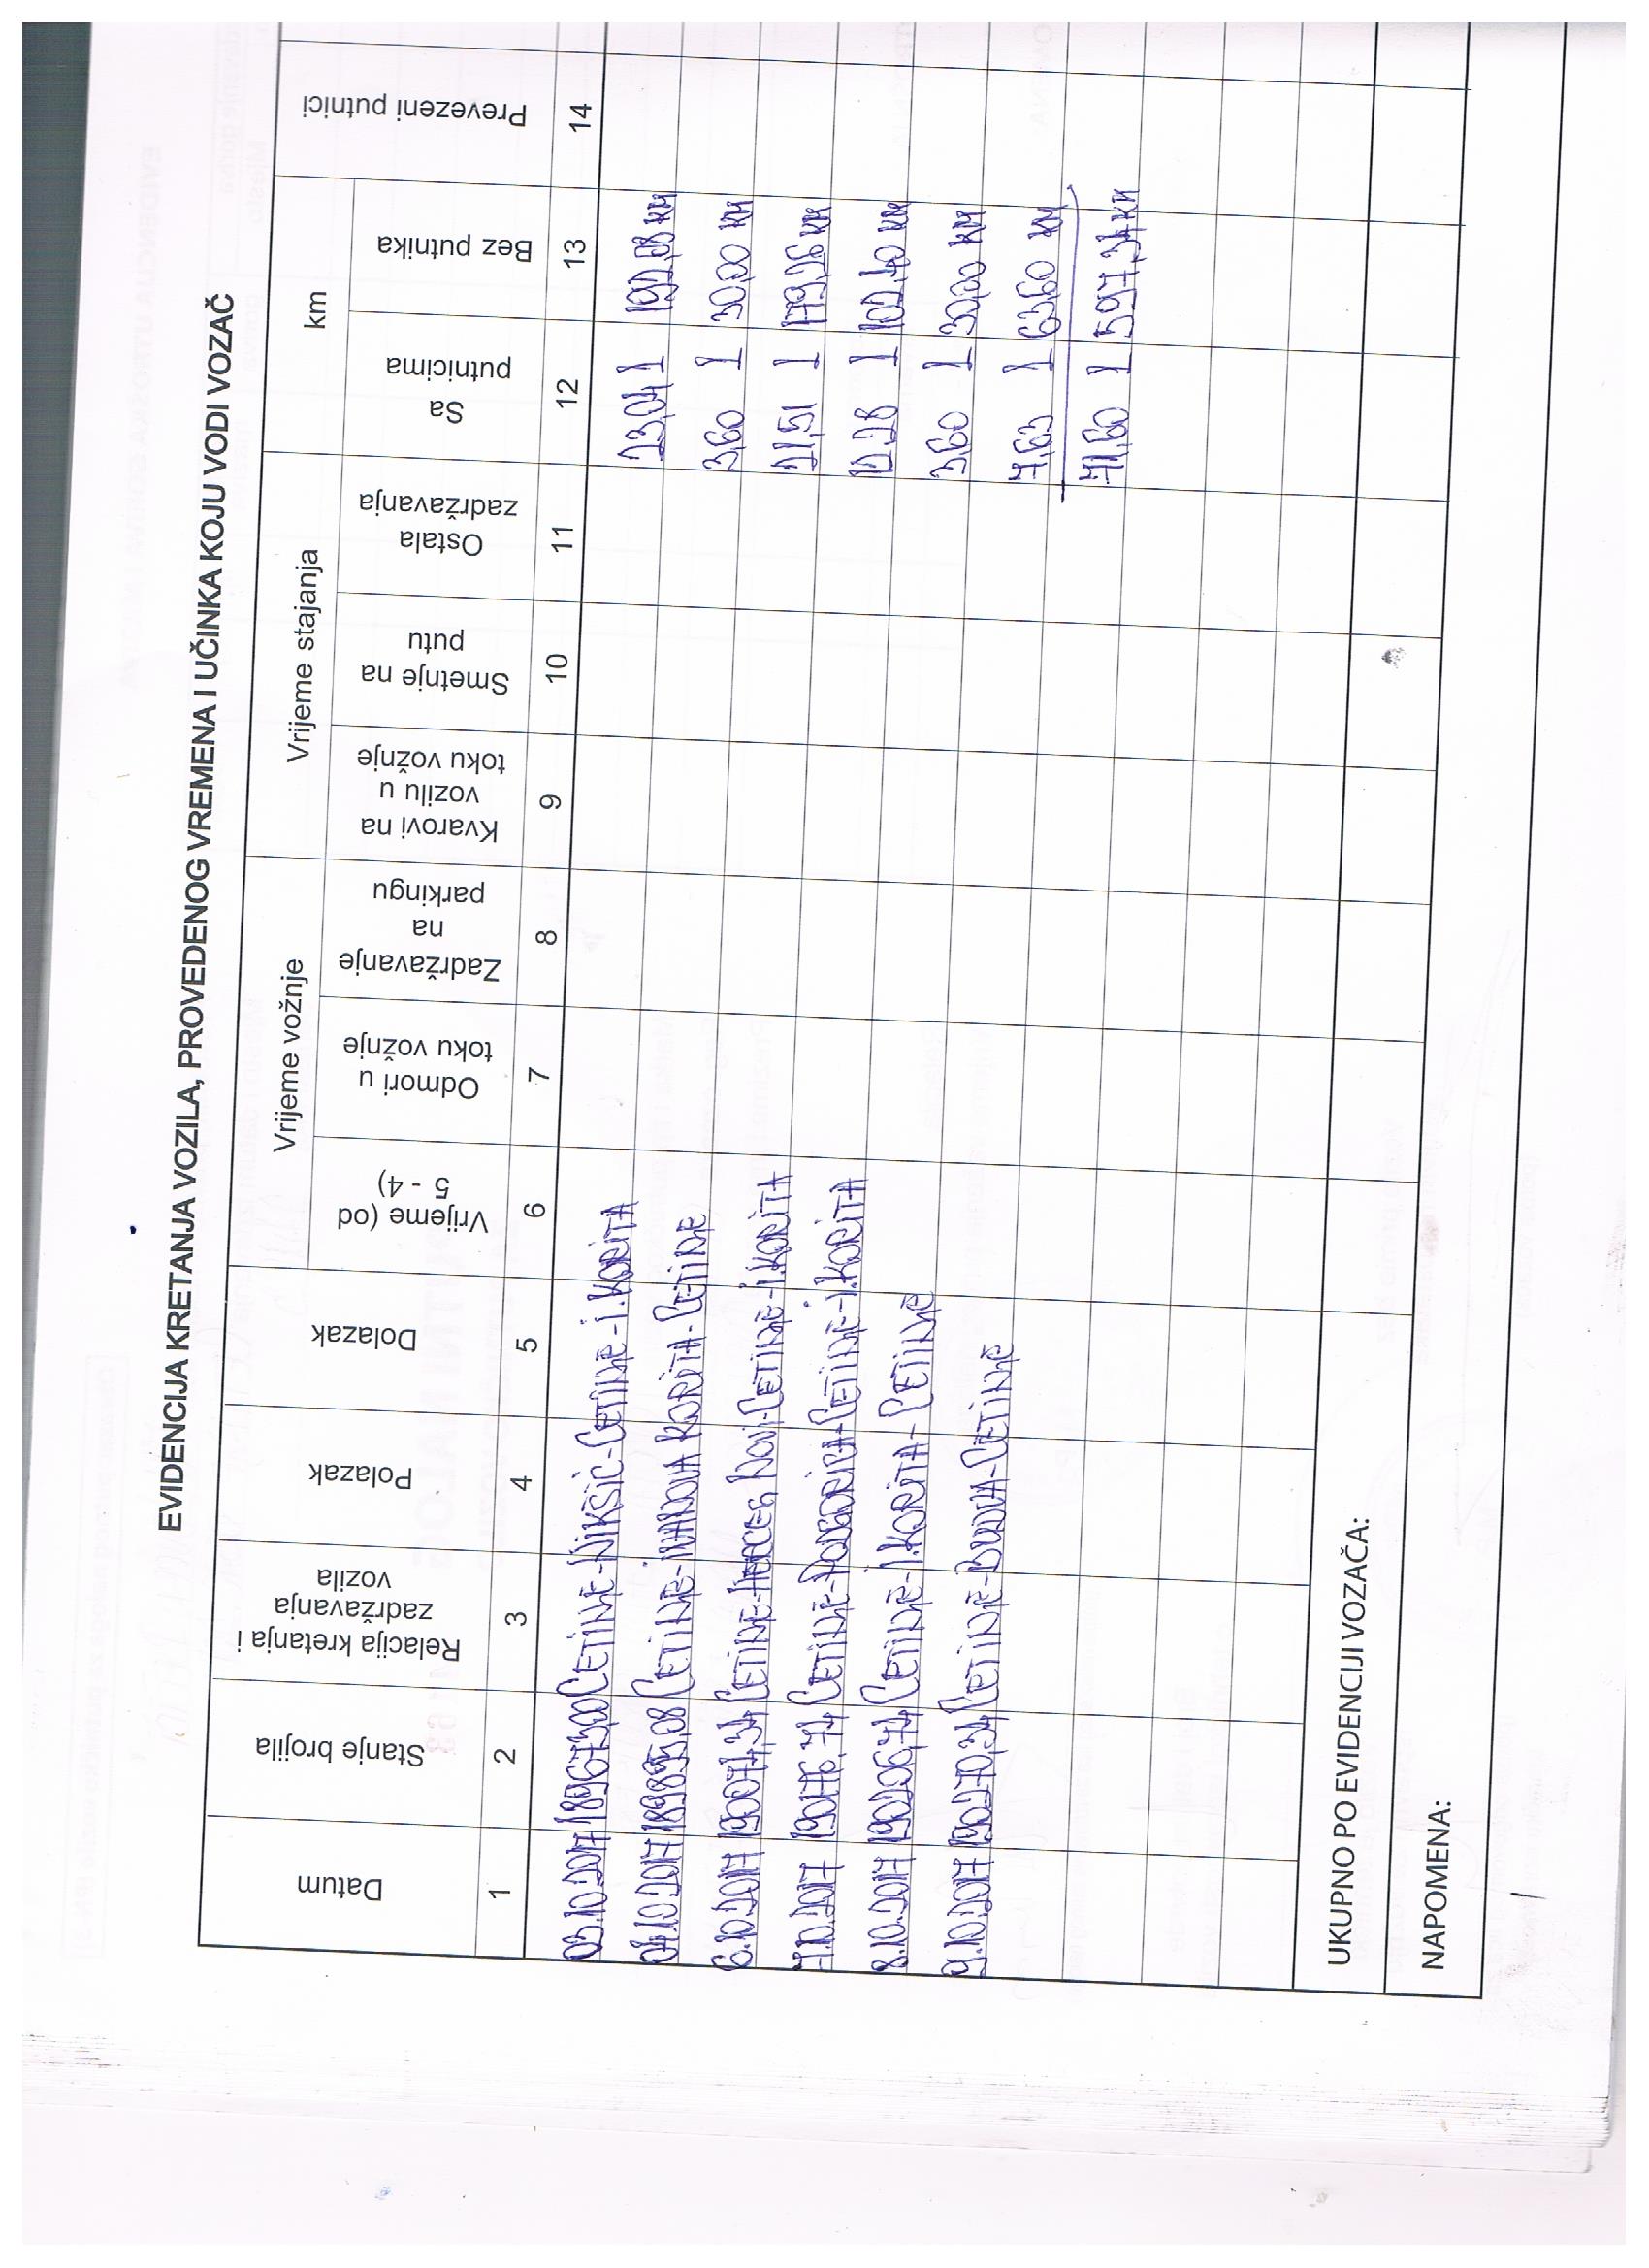 EVIDENCIJA KRETANJA VOZILA, PROVEDENOG VREMENA I UČINKA KOJU VODI VOZAČ
Vrijeme vožnje Vrijeme stajanja km
Datum Stanje brojila Relacija kretanja i zadržavanja vozila Polazak Dolazak Vrijeme (od 5 - 4) Odmori u toku vožnje Zadržavanje na parkingu Kvarovi na vozilu u toku vožnje Smetnje na putu Ostala zadržavanja Sa putnicima Bez putnika Prevezeni putnici
1 2 3 4 5 6 7 8 9 10 11 12 13 14
03.10.2017 189673,00 CETINJE-NIKŠIĆ-CETINJE-I.KORITA 23,04 l 192,08 KM
04.10.2017 189895,08 CETINJE-IVANOVA KORITA-CETINJE 3,60 l 30,00 KM
6.10.2017 190074,34 CETINJE-HERCEG NOVI-CETINJE-I.KORITA 21,51 l 179,26 KM
7.10.2017 190176,74 CETINJE-PODGORICA-CETINJE-I.KORITA 12,28 l 102,40 KM
8.10.2017 190206,74 CETINJE-I.KORITA-CETINJE 3,60 l 30,00 KM
9.10.2017 190270,34 CETINJE-BUDVA-CETINJE 7,63 l 63,60 KM
71,60 l 597,34 KM
UKUPNO PO EVIDENCIJI VOZAČA:
NAPOMENA: